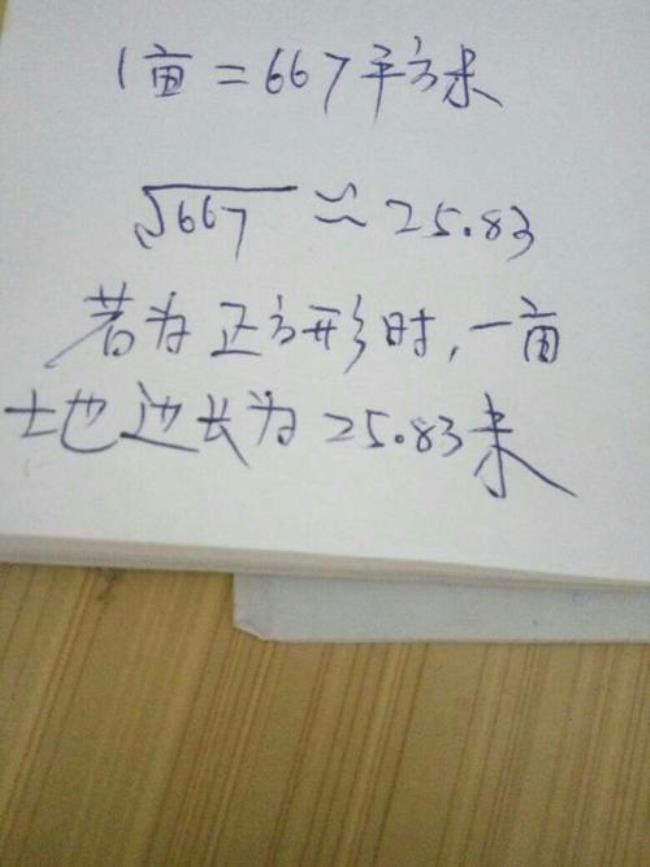 1亩=667平方米
√667≈25.83
若为正方形时,一亩
土地边长为25.83米